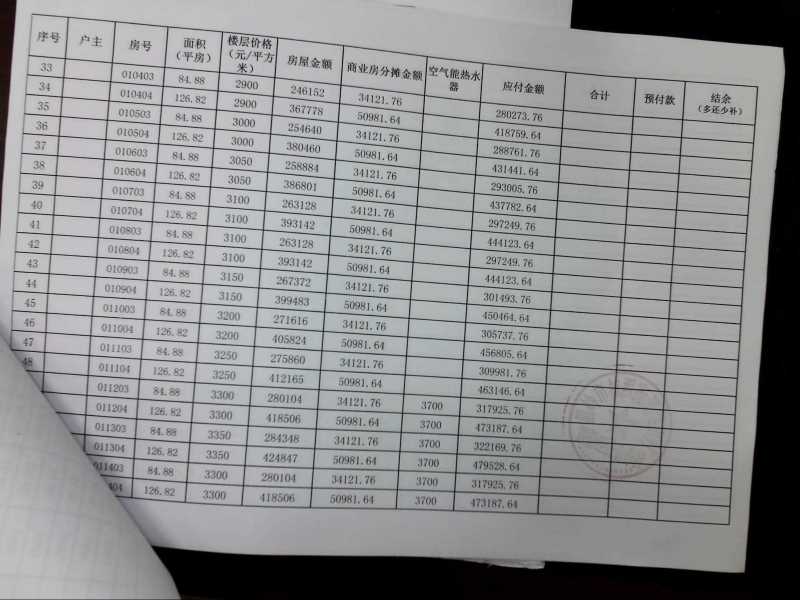 序号 户主 房号 面积（平房） 楼层价格（元/平方米） 房屋金额 商业房分摊金额 空气能热水器 应付金额 合计 预付款 结余（多还少补）
33 010403 84.88 2900 246152 34121.76 280273.76
34 010404 126.82 2900 367778 50981.64 418759.64
35 010503 84.88 3000 254640 34121.76 288761.76
36 010504 126.82 3000 380460 50981.64 431441.64
37 010603 84.88 3050 258884 34121.76 293005.76
38 010604 126.82 3050 386801 50981.64 437782.64
39 010703 84.88 3100 263128 34121.76 297249.76
40 010704 126.82 3100 393142 50981.64 444123.64
41 010803 84.88 3100 263128 34121.76 297249.76
42 010804 126.82 3100 393142 50981.64 444123.64
43 010903 84.88 3150 267372 34121.76 301493.76
44 010904 126.82 3150 399483 50981.64 450464.64
45 011003 84.88 3200 271616 34121.76 305737.76
46 011004 126.82 3200 405824 50981.64 456805.64
47 011103 84.88 3250 275860 34121.76 309981.76
48 011104 126.82 3250 412165 50981.64 463146.64
011203 84.88 3300 280104 34121.76 3700 317925.76
011204 126.82 3300 418506 50981.64 3700 473187.64
011303 84.88 3350 284348 34121.76 3700 322169.76
011304 126.82 3350 424847 50981.64 3700 479528.64
011403 84.88 3300 280104 34121.76 3700 317925.76
404 126.82 3300 418506 50981.64 3700 473187.64